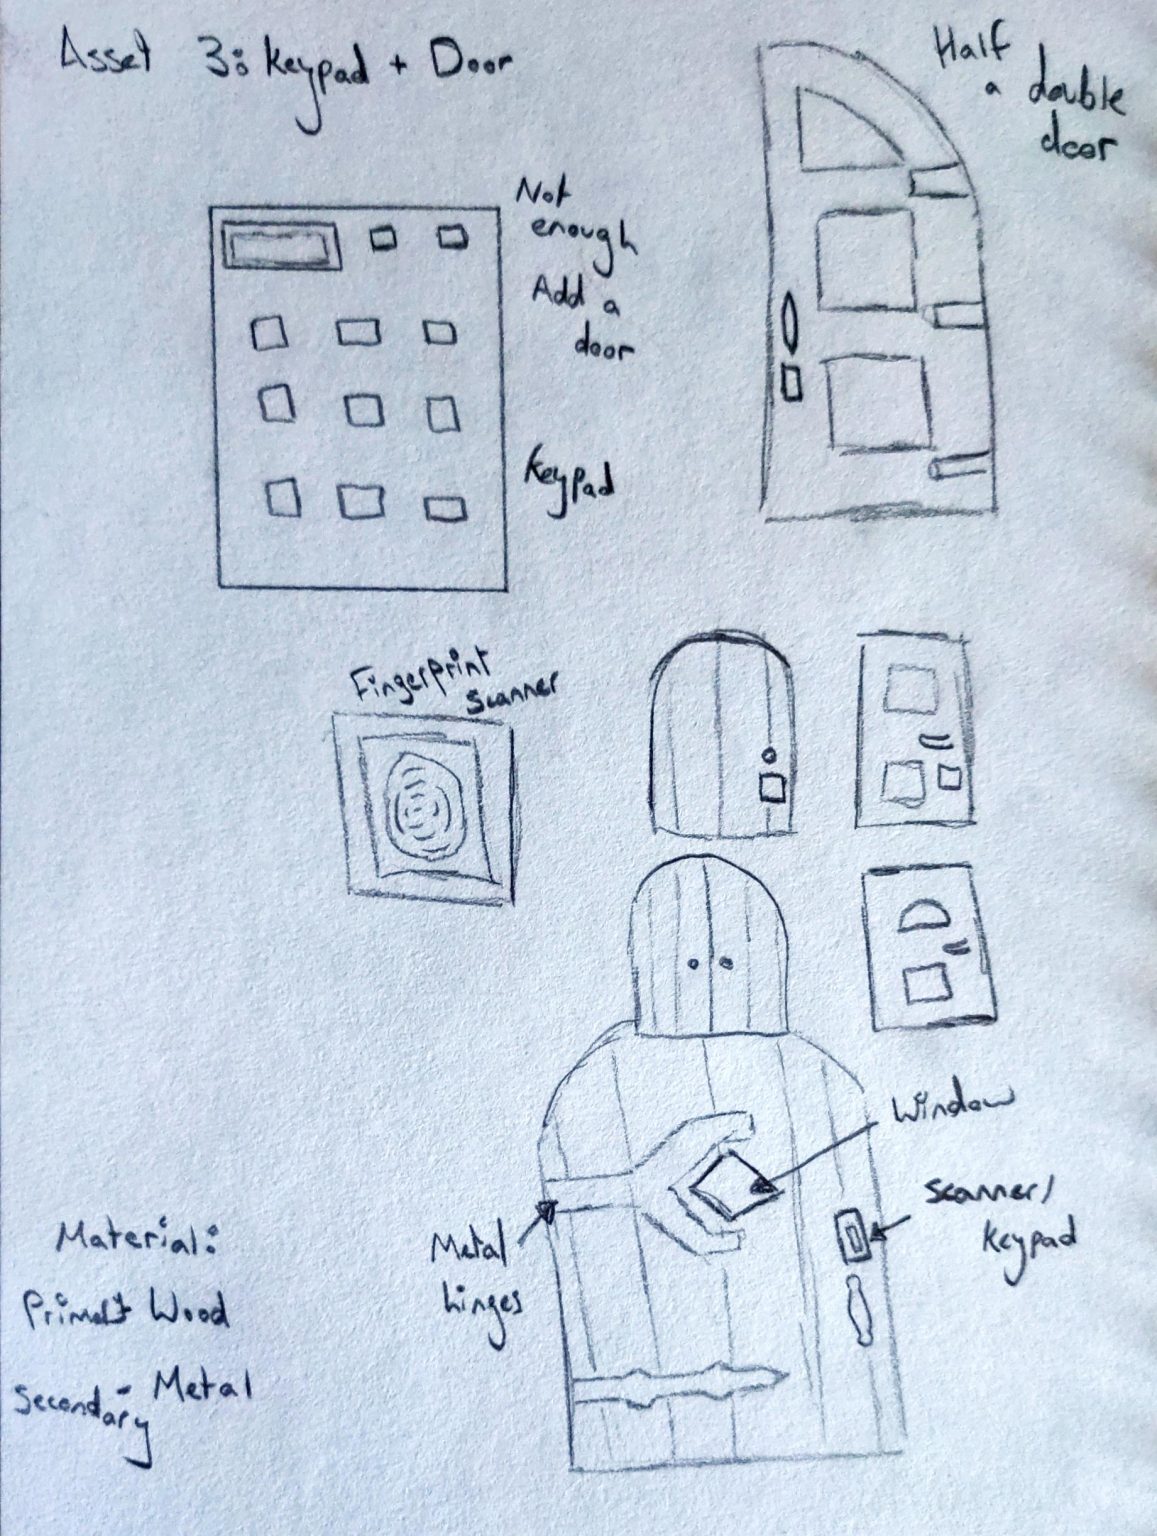 Asset 3: Keypad + Door
Half
a double
door
Not
enough
Add a
door
Keypad
Fingerprint
Scanner
Window
Scanner/
Keypad
Metal
hinges
Material:
Wood
Secondary - Metal